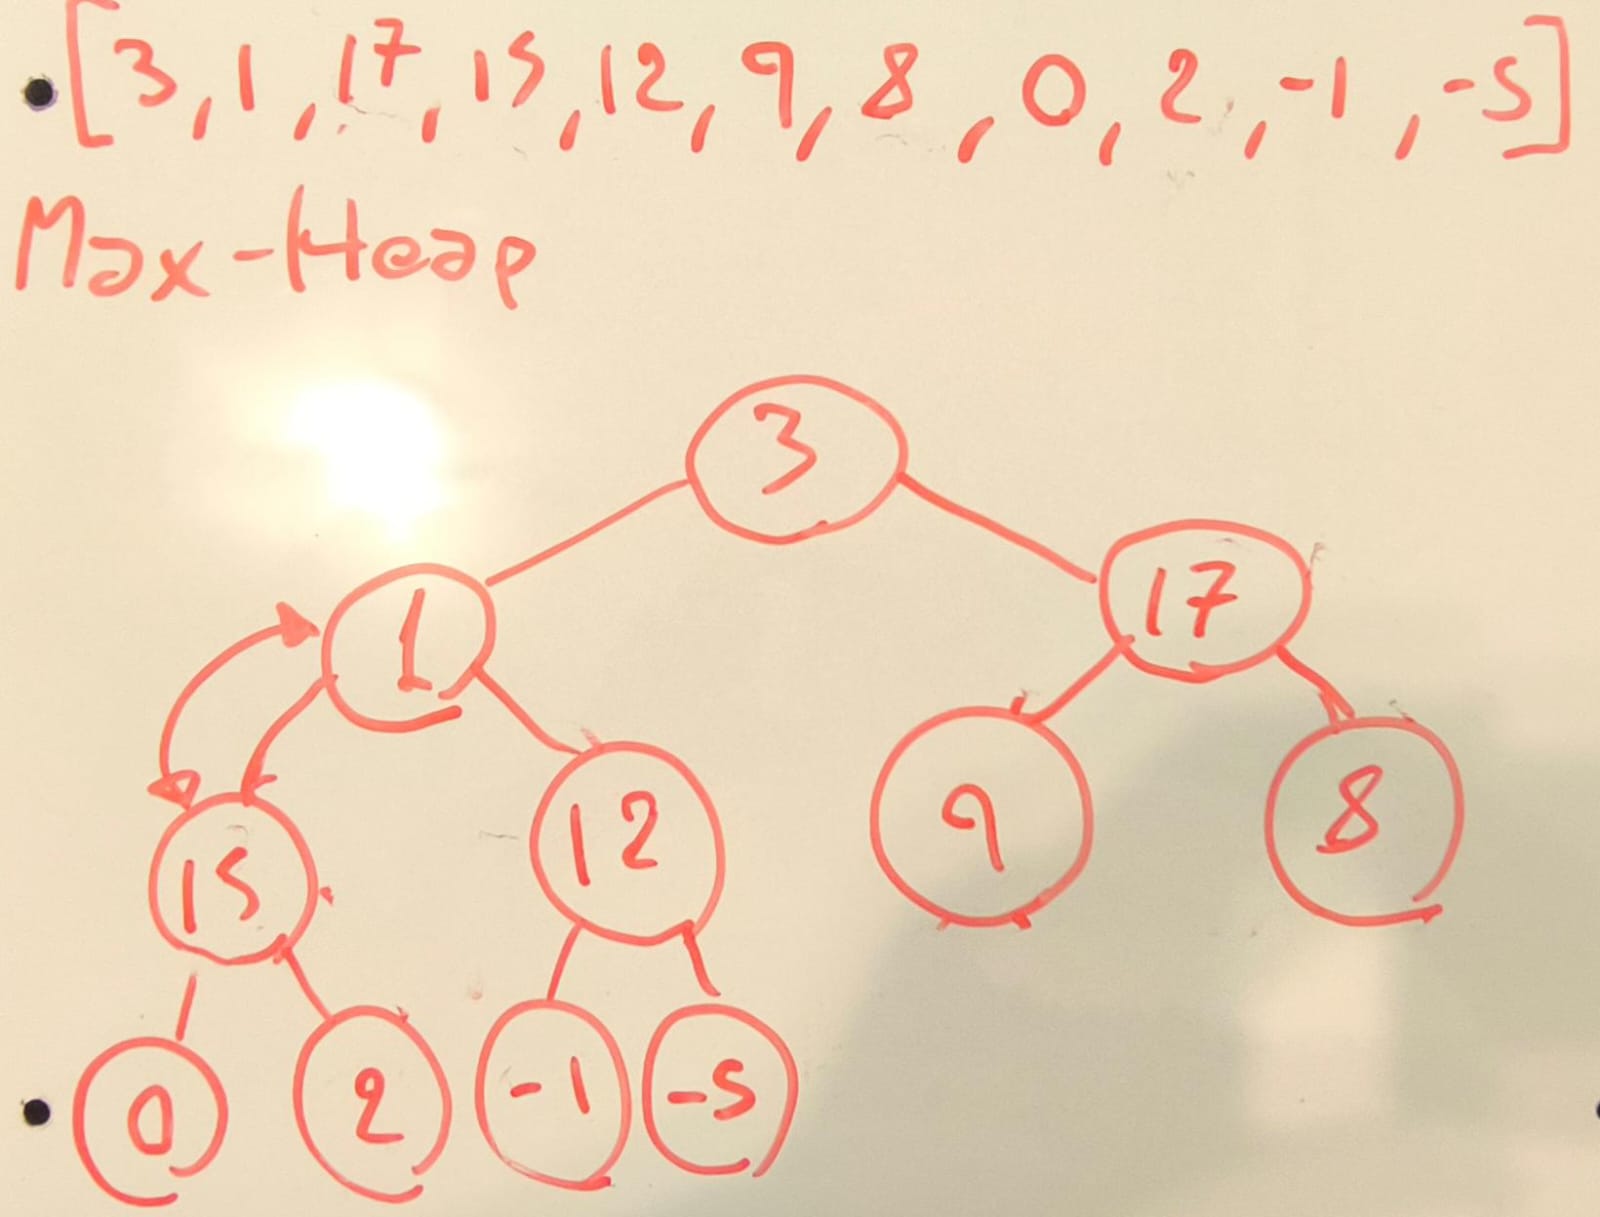 [3, 1, 17, 15, 12, 9, 8, 0, 2, -1, -5]
Max-Heap
3
1 17
15 12 9 8
0 2 -1 -5